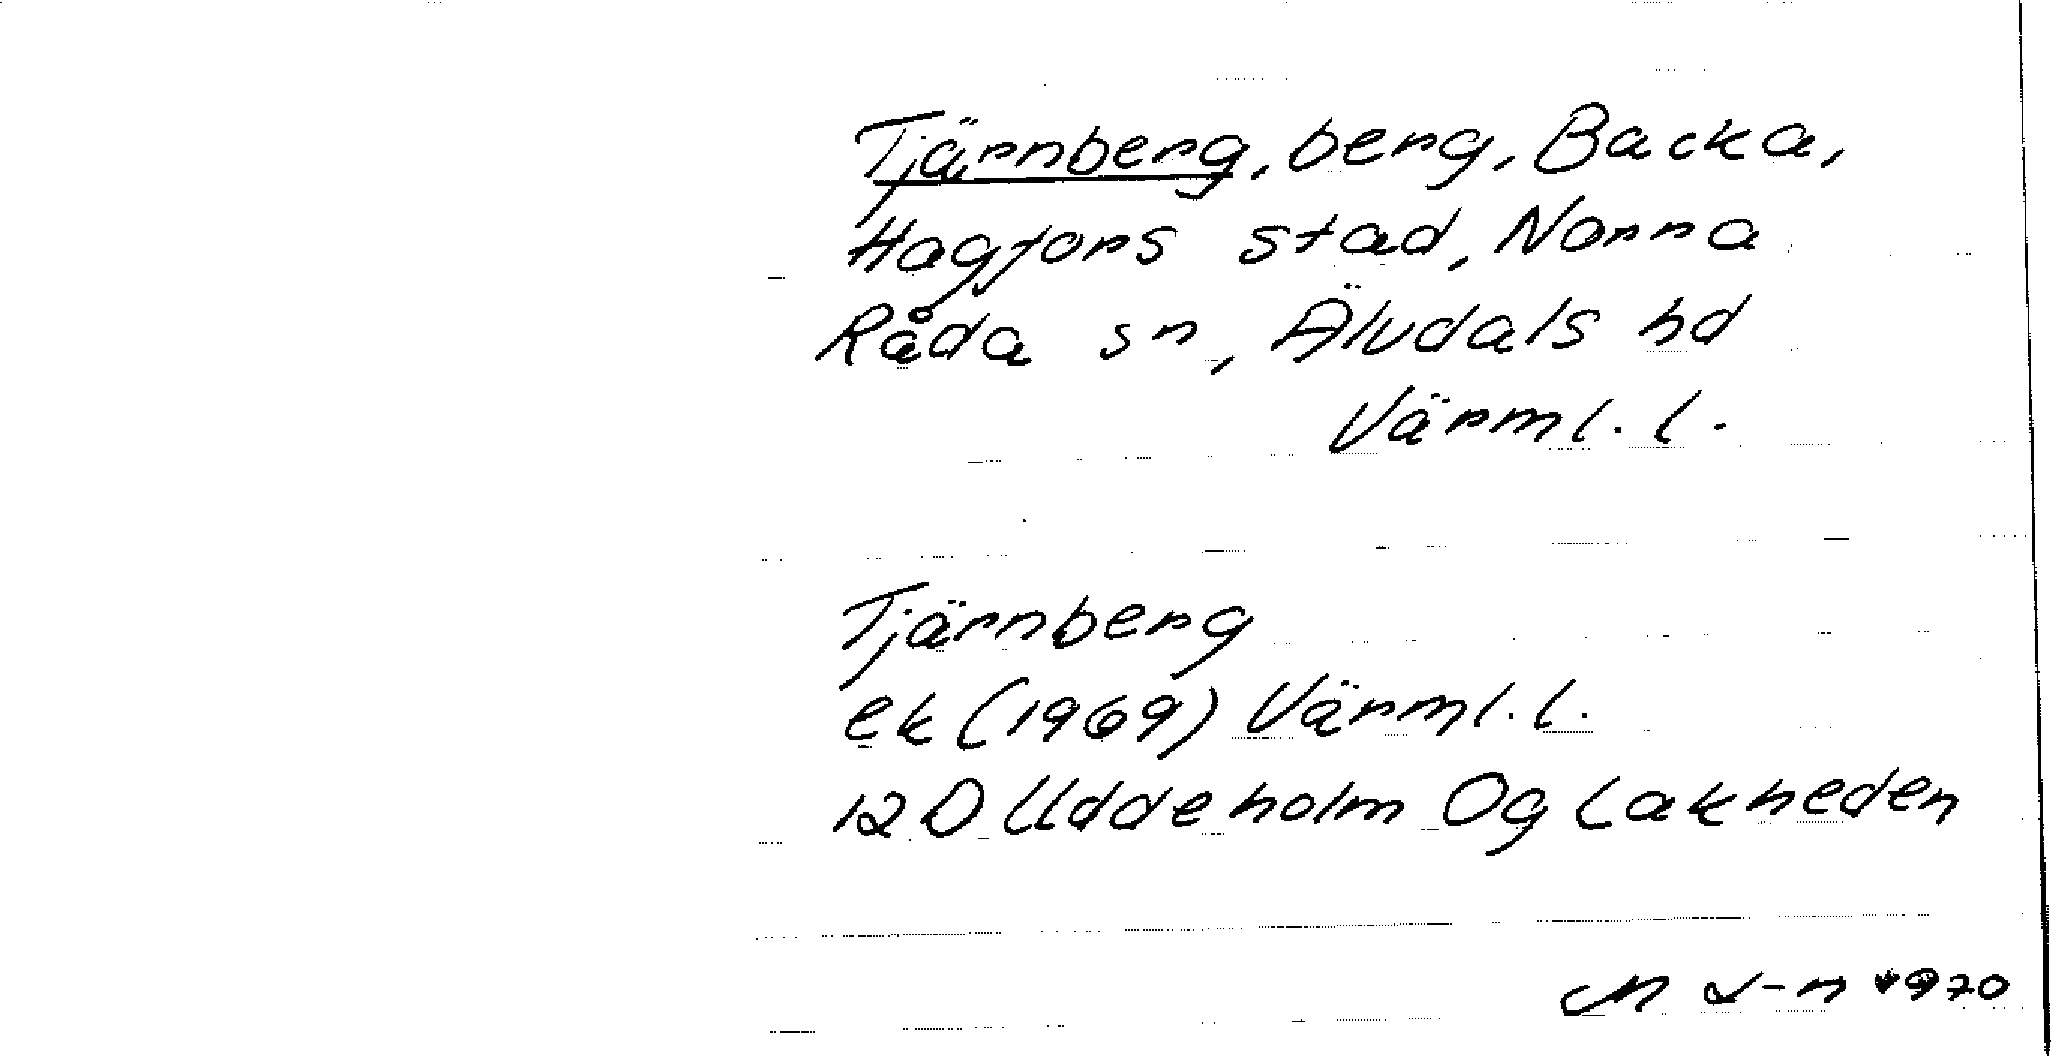 Tjärnberg, berg, Backa,
Hagfors stad, Norra
Råda sn, Älvdals hd
Värml. l.
Tjärnberg
ek (1969) Värml. l.
12 D Uddeholm Og Lakheden
1970